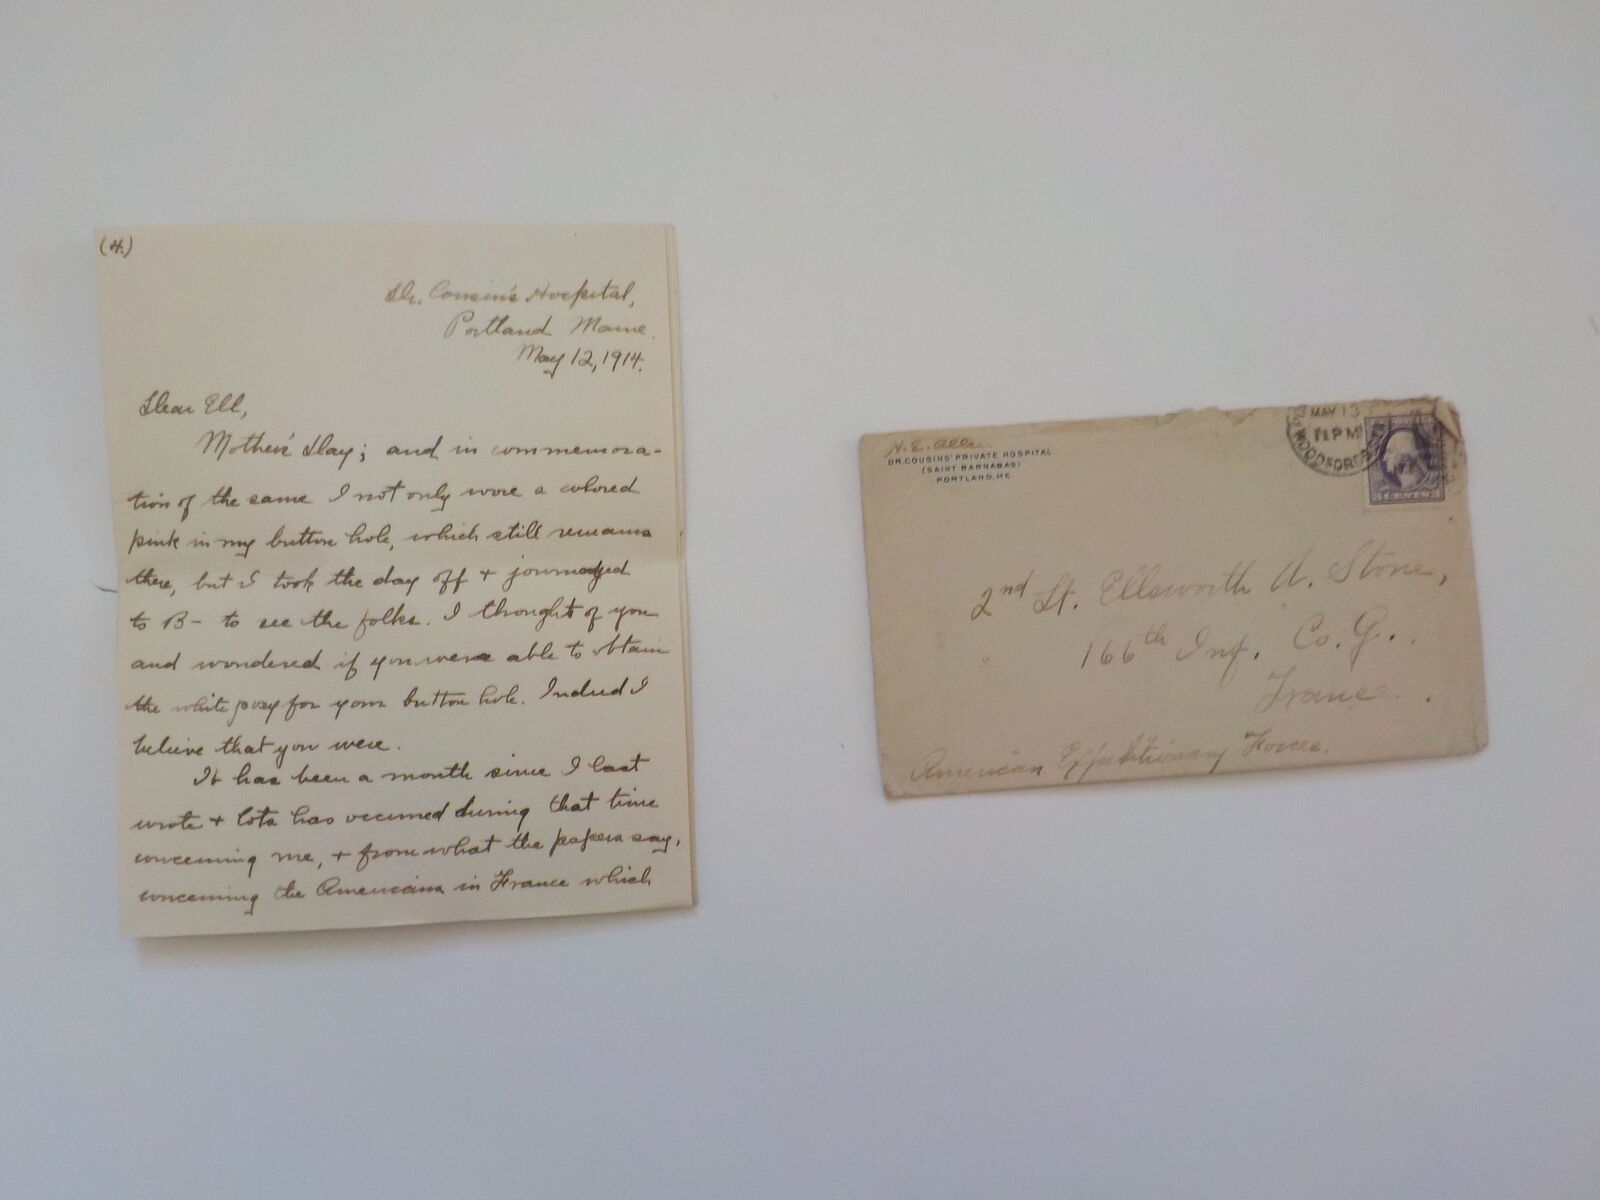 (4.)
Dr. Cousin's Hospital,
Portland Maine.
May 12, 1914.
Dear Ell,
Mother's Day; and in commemora-
tion of the same I not only wore a colored
pink in my button hole, which still remains
there, but I took the day off + journeyed
to B- to see the folks. I thought of you
and wondered if you were able to obtain
the white posy for your button hole. Indeed I
believe that you were.
It has been a month since I last
wrote + lots has occurred during that time
concerning me, + from what the papers say,
concerning the Americans in France which
H. E. Allen
DR. COUSINS' PRIVATE HOSPITAL
(SAINT BARNABAS)
PORTLAND, ME.
MAY 13
11 PM
WOODFORDS
3 CENTS 3
2nd Lt. Ellsworth A. Stone,
166th Inf. Co. G.
France.
American Expeditionary Forces.